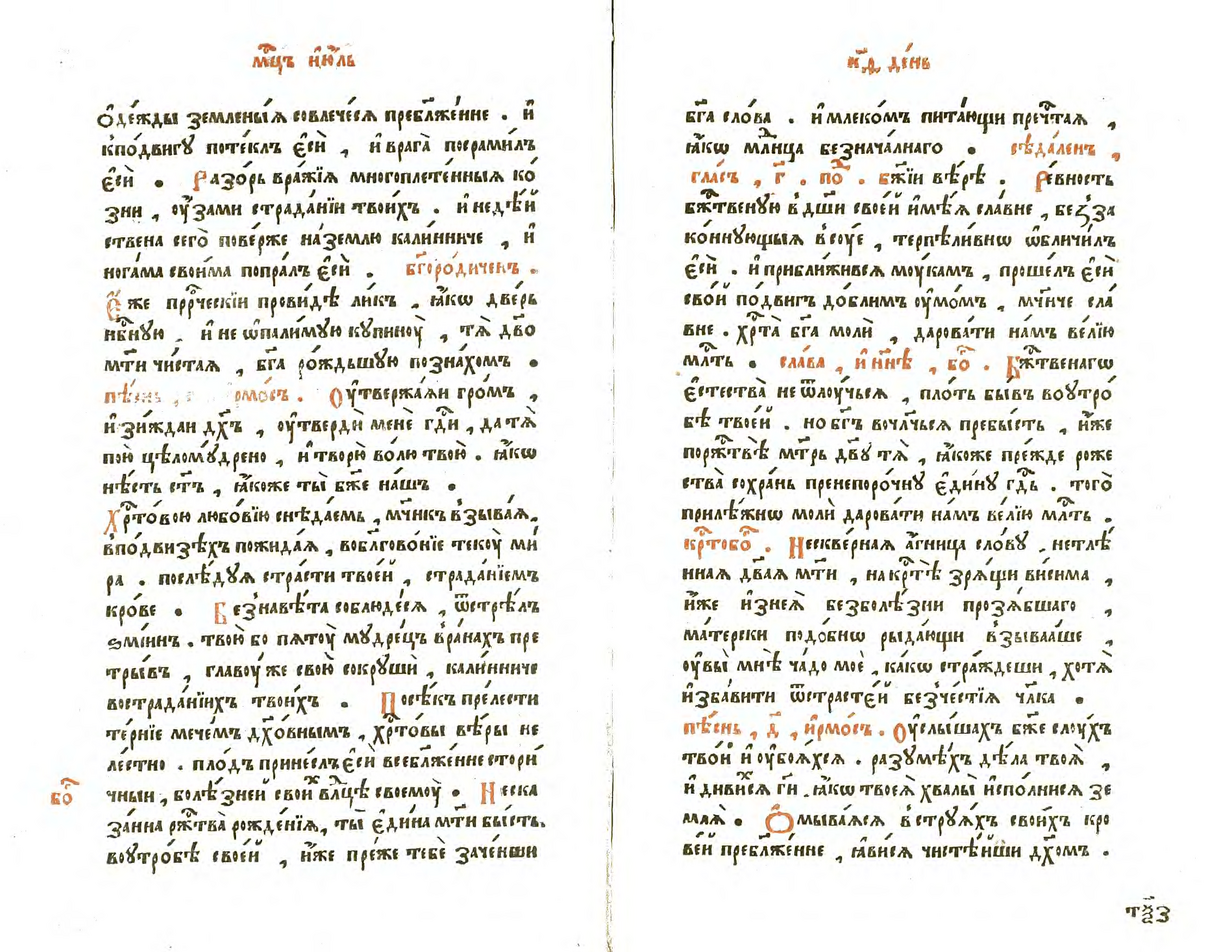 мц҃ъ їю҃ль
Оде́жды земленыѧ совлече́сѧ преблаже́нне . и҆
кпо́двигꙋ поте́клъ є҆сѝ , и҆врага̀ посрами́лъ
є҆сѝ . Разо́рь вра́жїѧ многоплете́нныѧ ко
зни , оу҆́зами страда́нїи твои́хъ . и҆недѣ́й
ствена сего̀ пове́рже на́землю калинниче , и҆
нога́ма свои́ма попра́лъ є҆сѝ . бг҃оро́диченъ .
Є҆́же прⷪ҇ро́ческїи прови́дѣ ли́къ , ꙗ҆́кѡ две́рь
нбⷭ҇нꙋю , и҆ не ѡ҆пали́мꙋю кꙋпинꙋ̀ , тѧ̀ дв҃о
мт҃и чи́стаѧ , бг҃а ро́ждьшꙋю позна́хомъ .
пѣ́снь , рмо́съ . Оу҆твержа́ѧи гро́мъ ,
и҆ зи́ждаи дх҃ъ , оу҆твердѝ менѐ гдⷭ҇и , да тѧ̀
пою̀ цѣломꙋ́дрено , и҆творю̀ во́лю твою̀ . ꙗ҆́кѡ
нѣ́сть ст҃ъ , ꙗ҆́коже ты̀ бж҃е на́шъ .
Хрⷭ҇то́вою любо́вїю снѣда́емь , мч҃нкъ взыва́ѧ ,
вподвизѣ́хъ пожида́ѧ , воблгово́нїе текоу̀ ми́
ра . послѣ́дꙋѧ стра́сти твое́й , страда́нїемъ
кро́ве . Безнавѣ́та соблюде́сѧ , ѿстрѣ́лъ
ѕмі́инъ . твою̀ бо пѧтоу̀ мꙋдре́цъ вра́нахъ пре
тры́въ , главоу́ же свою̀ сокрꙋшѝ , кали́нниче
вострада́нїихъ твои́хъ . Посѣ́къ пре́лести
те́рнїе мече́мъ дх҃о́внымъ , хрⷭ҇то́вы вѣ́ры не
ле́стно . пло́дъ прине́слъ є҆сѝ всеблаже́нне стори́
чныи , болѣ́зней свои́х влⷣцѣ своемоу̀ . Неска
за́нна ржⷭ҇тва̀ рожде́нїѧ , ты̀ є҆ди́на мт҃и бы́сть .
воутро́бѣ свое́й , и҆́же пре́же тебѐ заче́нши
боⷢ҇
к҃д де́нь
бг҃а сло́ва . и҆ млеко́мъ пита́ющи преч҇таѧ ,
ꙗ҆́кѡ млⷣнца безнача́лнаго . сѣда́ленъ ,
гла́съ , г҃ . поⷣ . бж҃їи вѣ́рѣ . Ре́вность
бжⷭ҇твенꙋю вдш҃и свое́й и҆мѣ́ѧ сла́вне , безза
ко́ннꙋющыѧ всоуе , терпѣли́внѡ ѡ҆бличи́лъ
є҆сѝ . и҆ прибли́живсѧ моу́камъ , проше́лъ є҆сѝ
сво́й по́двигъ до́блимъ оу҆мо́мъ , мч҃нче сла́
вне . хрⷭ҇та̀ бг҃а молѝ , дарова́ти на́мъ ве́лїю
млⷭ҇ть . сла́ва , и҆ нн҃ѣ , боⷢ҇ . Бжⷭ҇твенагѡ
є҆стества̀ не ѿлоу́чьсѧ , пло́ть бы́въ воутро́
бѣ твое́й . но бг҃ъ вочл҃чьсѧ пребы́сть , и҆́же
поржⷭ҇твѣ̀ мт҃рь дв҃ꙋ тѧ̀ , ꙗ҆́коже пре́жде роже
ства̀ сохра́нь пренепоро́чнꙋ є҆ди́нꙋ гдⷭ҇ь . того̀
прилѣ́жнѡ молѝ дарова́ти на́мъ ве́лїю млⷭ҇ть .
крⷭ҇тобоⷢ҇ . Нескве́рнаѧ а҆́гница сло́вꙋ , нетлѣ́
ннаѧ дв҃аѧ мт҃и , на крⷭ҇тѣ̀ зрѧ́щи ви́сима ,
и҆́же и҆знеѧ̀ безболѣ́зни прозѧ́бшаго ,
ма́терски подо́бнѡ рыда́ющи взыва́аше ,
оу҆вы̀ мнѣ̀ ча́до моѐ , ка́кѡ стра́ждеши , хотѧ̀
и҆зба́вити ѿстрасте́й безче́стїѧ чл҃ка .
пѣ́снь , д҃ , и҆рмо́съ . Оу҆слы́шахъ бж҃е слоу́хъ
тво́й и҆ оу҆боѧ́хсѧ . разꙋмѣ́хъ дѣла̀ твоѧ̀ ,
и҆ диви́хсѧ ги҃ . ꙗ҆́кѡ твоеѧ̀ хвалы̀ и҆спо́лнисѧ зе
млѧ̀ . Омыва́ѧсѧ встрꙋѧ́хъ свои́хъ кро
ве́й преблаже́нне , ꙗ҆ви́сѧ чистѣ́йши дх҃омъ .
тѯ҃з